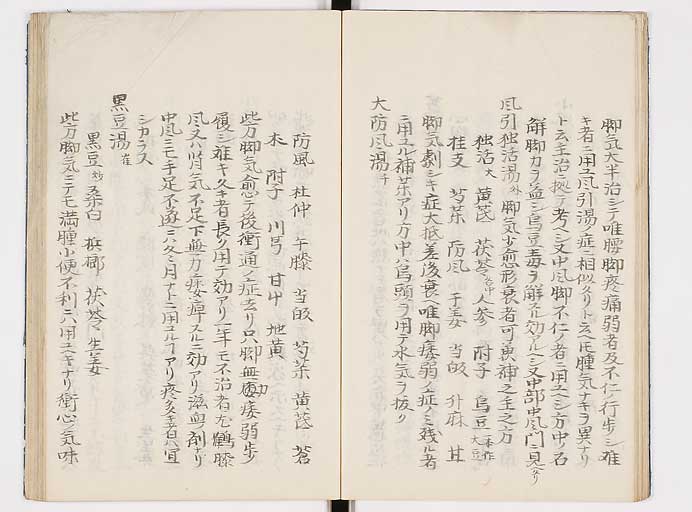 脚気大半治シテ唯腰脚疼痛弱者及不仁ノ行歩シ難
キ者ニ用ユ風引湯ノ症ニ相似タリト云ヘ𪜈腫気ナキヲ異ナリ
ト云主治ニ拠テ考ヘシ又中風脚不仁ノ者ニ用ユヘシ方中ノ石
解脚カヲ益シ烏豆毒ヲ解スル効アルヘシ又中部中風門ニ見ヘタリ
風引独活湯 外 脚気少愈形衰者可兼補之主之方
独活 大 黄芪 茯苓 人参 附子 烏豆 一本作大豆
桂支 芍薬 防風 干姜 当皈 升麻 甘
脚気劇シキ症大抵差後衰ヘ唯脚痿弱ノ症ノミ残ル者
ニ用ユル補薬アリ方中ハ烏頭ヲ用テ水気ヲ抜ク
大防風湯 千
防風 杜仲 牛膝 当皈 芍薬 黄芪 蒼
朮 附子 川芎 甘中 地黄
此方脚気愈テ後衝通ノ症去リ只脚無力痿弱歩
履シ難キ久キ者長ク用テ効アリ一年モ不治者尤鶴膝
風又ハ腎気不足下無力痿痺スルニ効アリ滋血ノ剤ナリ
中風ニモ手足不遂ニハ冬月ナトニ用ユルコアリ疼多キ者ハ宜
シカラス
黒豆湯 崔
黒豆 炒 桑白 梹榔 茯苓 生姜
此方脚気ニテモ満腫小便不利ニ用ユヘキナリ衝心ノ気味